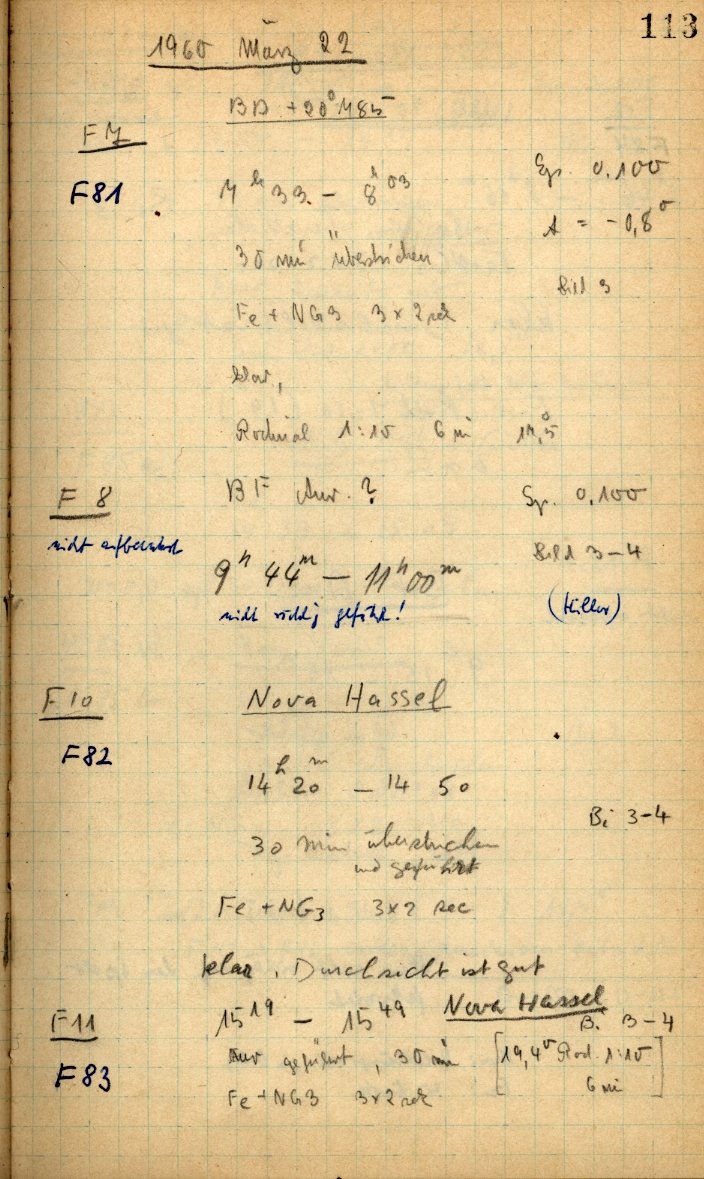 113
1960 März 22
BD +20° 485
F 7
F81
7h 33 - 8h 03
Sp. 0.100
A = -0,8°
30 min überstrichen
Bild 3
Fe + NG3 3 x 2 sek
klar,
Rodinal 1:10 6 min
F 8
BF Aur. ?
Sp. 0.100
nicht aufbewahrt
Bild 3-4
9h 44m - 11h 00m
nicht richtig geführt!
F 10
Nova Hassel
F82
14h 20m - 14 50
Bi 3-4
30 min überstrichen
und geführt
Fe + NG3 3x2 sec
klar, Durchsicht ist gut
F11
15 19 - 15 49 Nova Hassel
B. 3-4
F83
nur geführt, 30 min
[19,4° Rod. 1:10
6 min]
Fe + NG3 3x2 sek